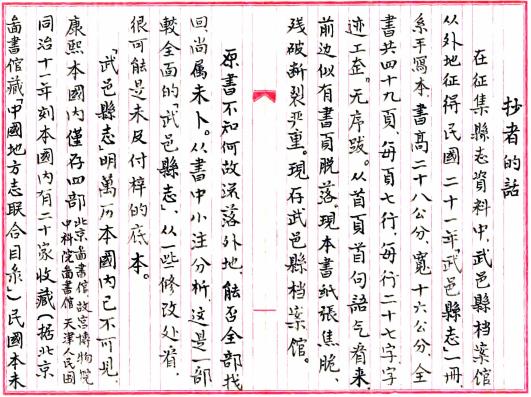 抄者的話
在征集縣志資料中,武邑縣档案馆
从外地征得民國二十一年武邑縣志」一冊
系手寫本.書高二十八公分、寬十六公分、全
書共四十九頁、每頁七行、每行二十七字、字
迹工整。无序跋。从首頁首句語气看来、
前边似有書頁脱落。現本書紙張焦脆、
残破断裂严重。現存武邑縣档案馆。
原書不知何故流落外地、能否全部找
回尚属未卜。从書中小注分析、这是一部
較全面的「武邑縣志」、从一些修改处看、
很可能是未及付梓的底本。
「武邑縣志明萬历本國内已不可見、
康熙本國内僅存四部北京圕書馆故宮博物院
中科院圕書馆天津人民圕
同治十一年刻本國内有二十家收藏(据北京
圕書馆藏「中國地方志联合目录」)民國本未